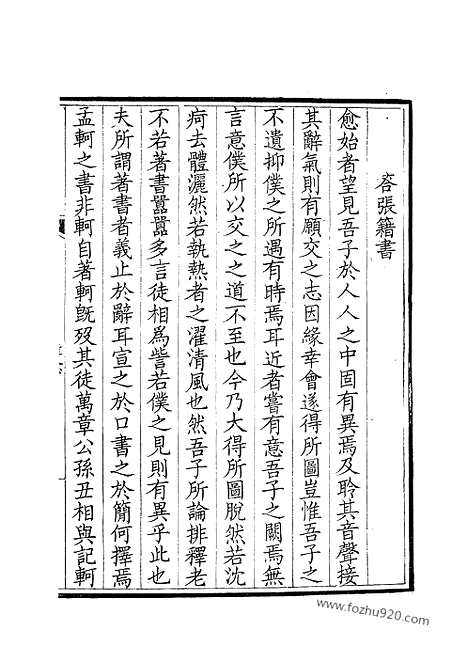 荅張籍書
愈始者望見吾子於人人之中固有異焉及聆其音聲接
其辭氣則有願交之志因緣幸會遂得所圖豈惟吾子之
不遺抑僕之所遇有時焉耳近者嘗有意吾子之闕焉無
言意僕所以交之之道不至也今乃大得所圖脫然若沈
疴去體灑然若執熱者之濯清風也然吾子所論排釋老
不若著書囂囂多言徒相爲訾若僕之見則有異乎此也
夫所謂著書者義止於辭耳宣之於口書之於簡何擇焉
孟軻之書非軻自著軻旣歿其徒萬章公孫丑相與記軻
www.fozhu920.com